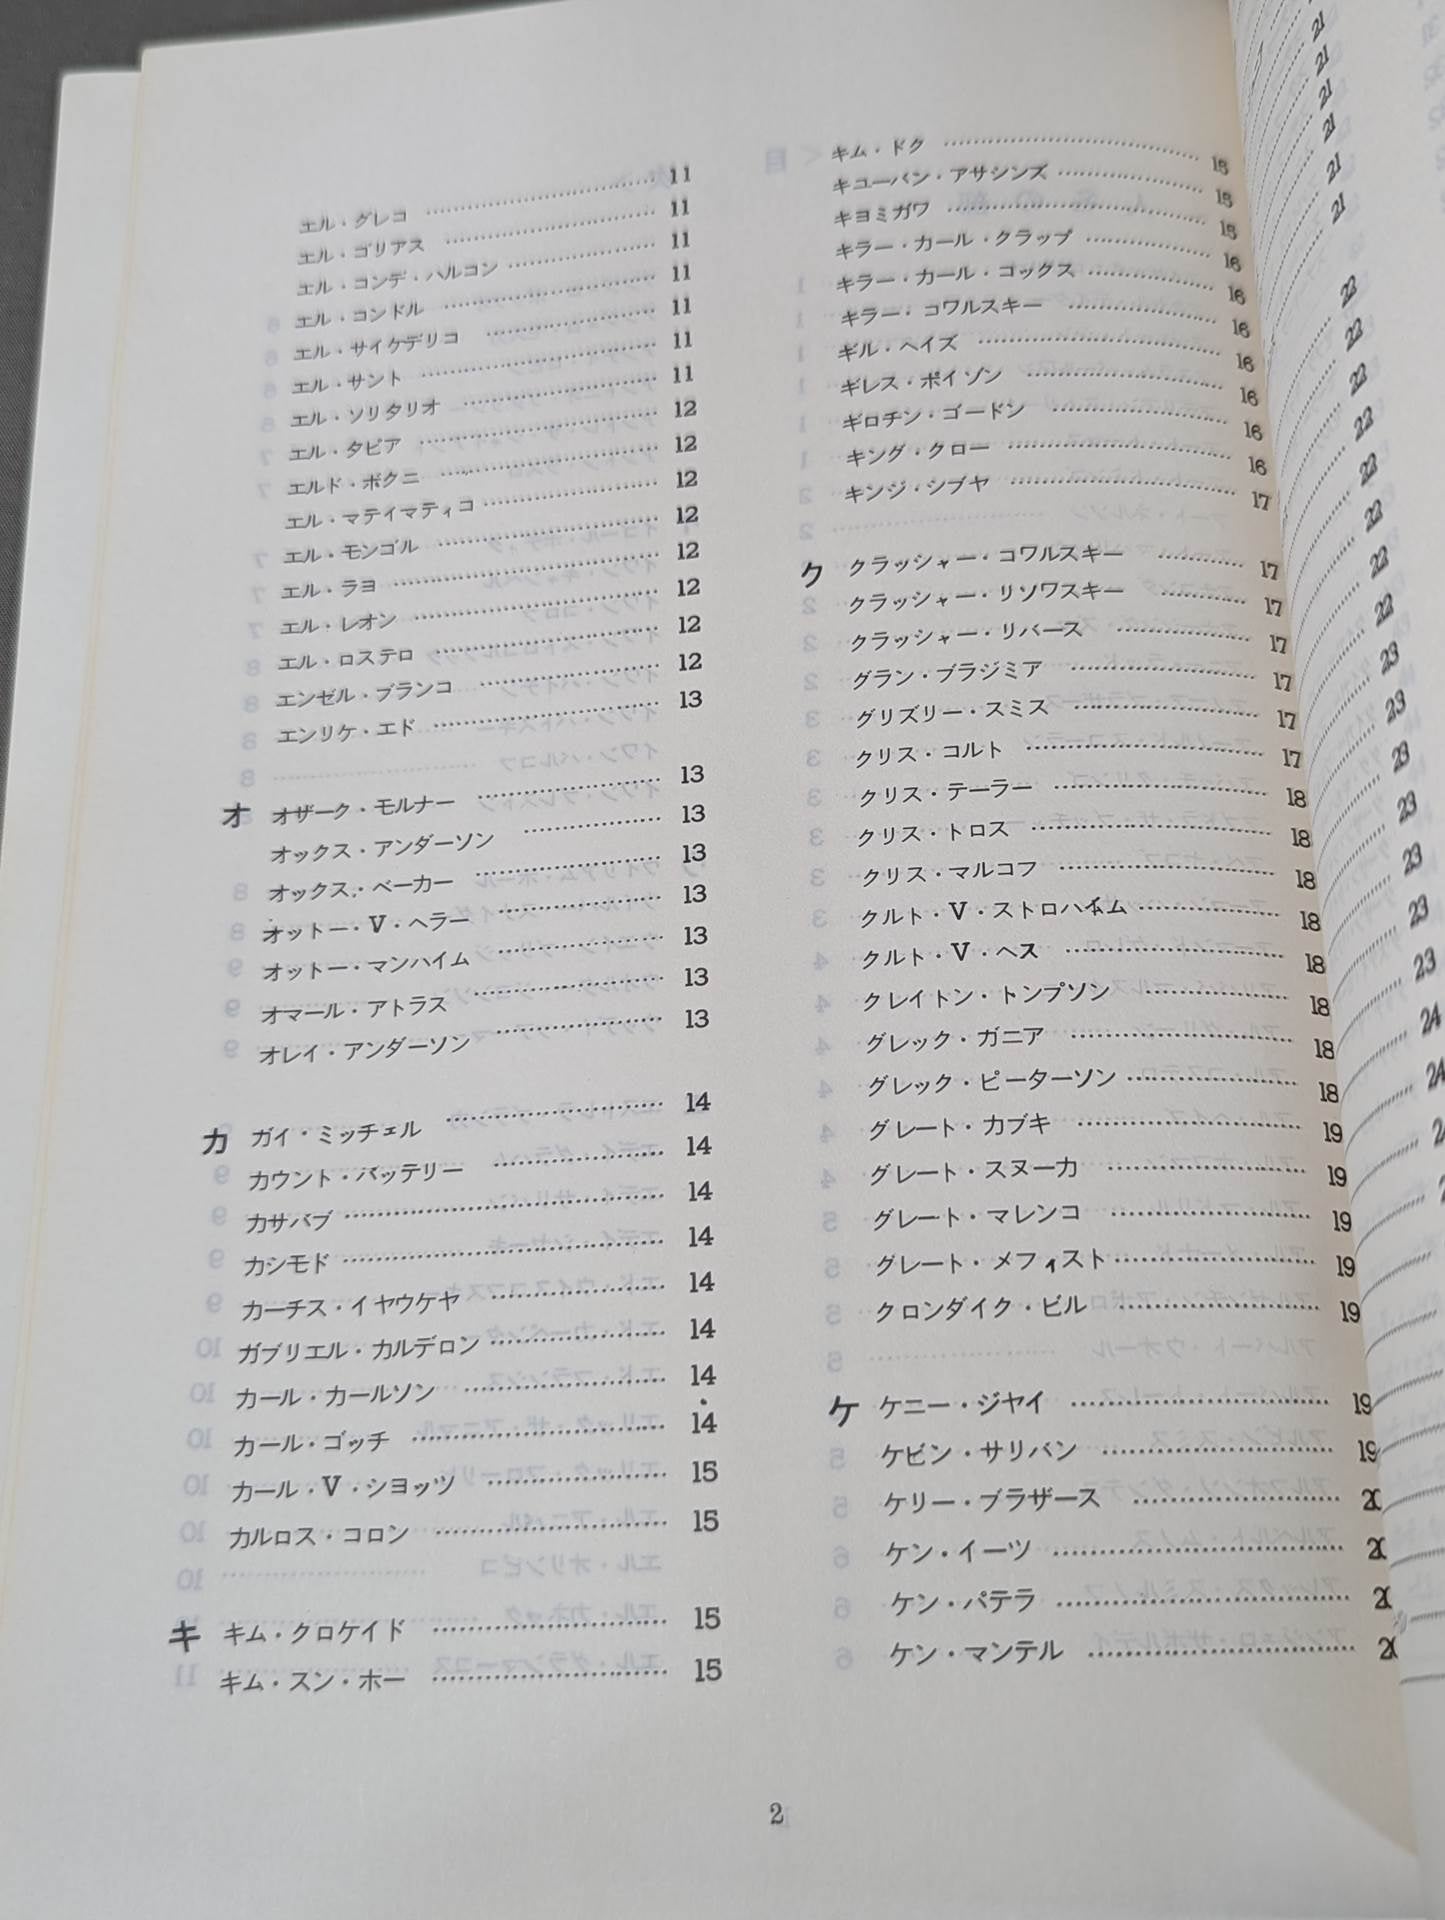 エル・グレコ ………… 11
エル・ゴリアス ………… 11
エル・コンデ・ハルコン ………… 11
エル・コンドル ………… 11
エル・サイケデリコ ………… 11
エル・サント ………… 11
エル・ソリタリオ ………… 11
エル・タピア ………… 12
エルド・ボクニ ………… 12
エル・マテイマティコ ………… 12
エル・モンゴル ………… 12
エル・ラヨ ………… 12
エル・レオン ………… 12
エル・ロステロ ………… 12
エンゼル・ブランコ ………… 12
エンリケ・エド ………… 13
オ オザーク・モルナー ………… 13
オックス・アンダーソン ………… 13
オックス・ベーカー ………… 13
オットー・V・ヘラー ………… 13
オットー・マンハイム ………… 13
オマール・アトラス ………… 13
オレイ・アンダーソン ………… 13
カ ガイ・ミッチェル ………… 14
カウント・バッテリー ………… 14
カサバブ ………… 14
カシモド ………… 14
カーチス・イヤウケヤ ………… 14
ガブリエル・カルデロン ………… 14
カール・カールソン ………… 14
カール・ゴッチ ………… 14
カール・V・シヨッツ ………… 15
カルロス・コロン ………… 15
キ キム・クロケイド ………… 15
キム・スン・ホー ………… 15
キム・ドク ………… 15
キユーバン・アサシンズ ………… 15
キヨミガワ ………… 15
キラー・カール・クラップ ………… 16
キラー・カール・コックス ………… 16
キラー・コワルスキー ………… 16
ギル・ヘイズ ………… 16
ギレス・ポイゾン ………… 16
ギロチン・ゴードン ………… 16
キング・クロー ………… 16
キンジ・シブヤ ………… 17
ク クラッシャー・コワルスキー ………… 17
クラッシャー・リソワスキー ………… 17
クラッシャー・リバース ………… 17
グラン・ブラジミア ………… 17
グリズリー・スミス ………… 17
クリス・コルト ………… 17
クリス・テーラー ………… 18
クリス・トロス ………… 18
クリス・マルコフ ………… 18
クルト・V・ストロハイム ………… 18
クルト・V・ヘス ………… 18
クレイトン・トンプソン ………… 18
グレック・ガニア ………… 18
グレック・ピーターソン ………… 18
グレート・カブキ ………… 19
グレート・スヌーカ ………… 19
グレート・マレンコ ………… 19
グレート・メフィスト ………… 19
クロンダイク・ビル ………… 19
ケ ケニー・ジヤイ ………… 19
ケビン・サリバン ………… 19
ケリー・ブラザース ………… 20
ケン・イーツ ………… 20
ケン・パテラ ………… 20
ケン・マンテル ………… 20
2
21
21
21
21
21
21
22
22
22
22
22
22
22
22
23
23
23
23
23
23
23
24
24